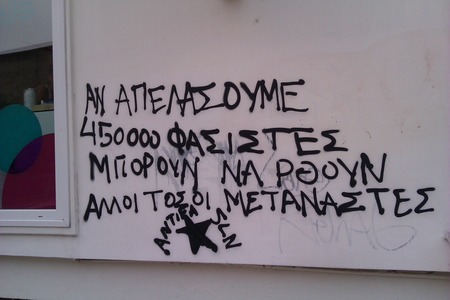 ΑΝ ΑΠΕΛΑΣΟΥΜΕ
450000 ΦΑΣΙΣΤΕΣ
ΜΠΟΡΟΥΝ ΝΑ ΡΘΟΥΝ
ΑΛΛΟΙ ΤΟΣΟΙ ΜΕΤΑΝΑΣΤΕΣ
ANTIFA